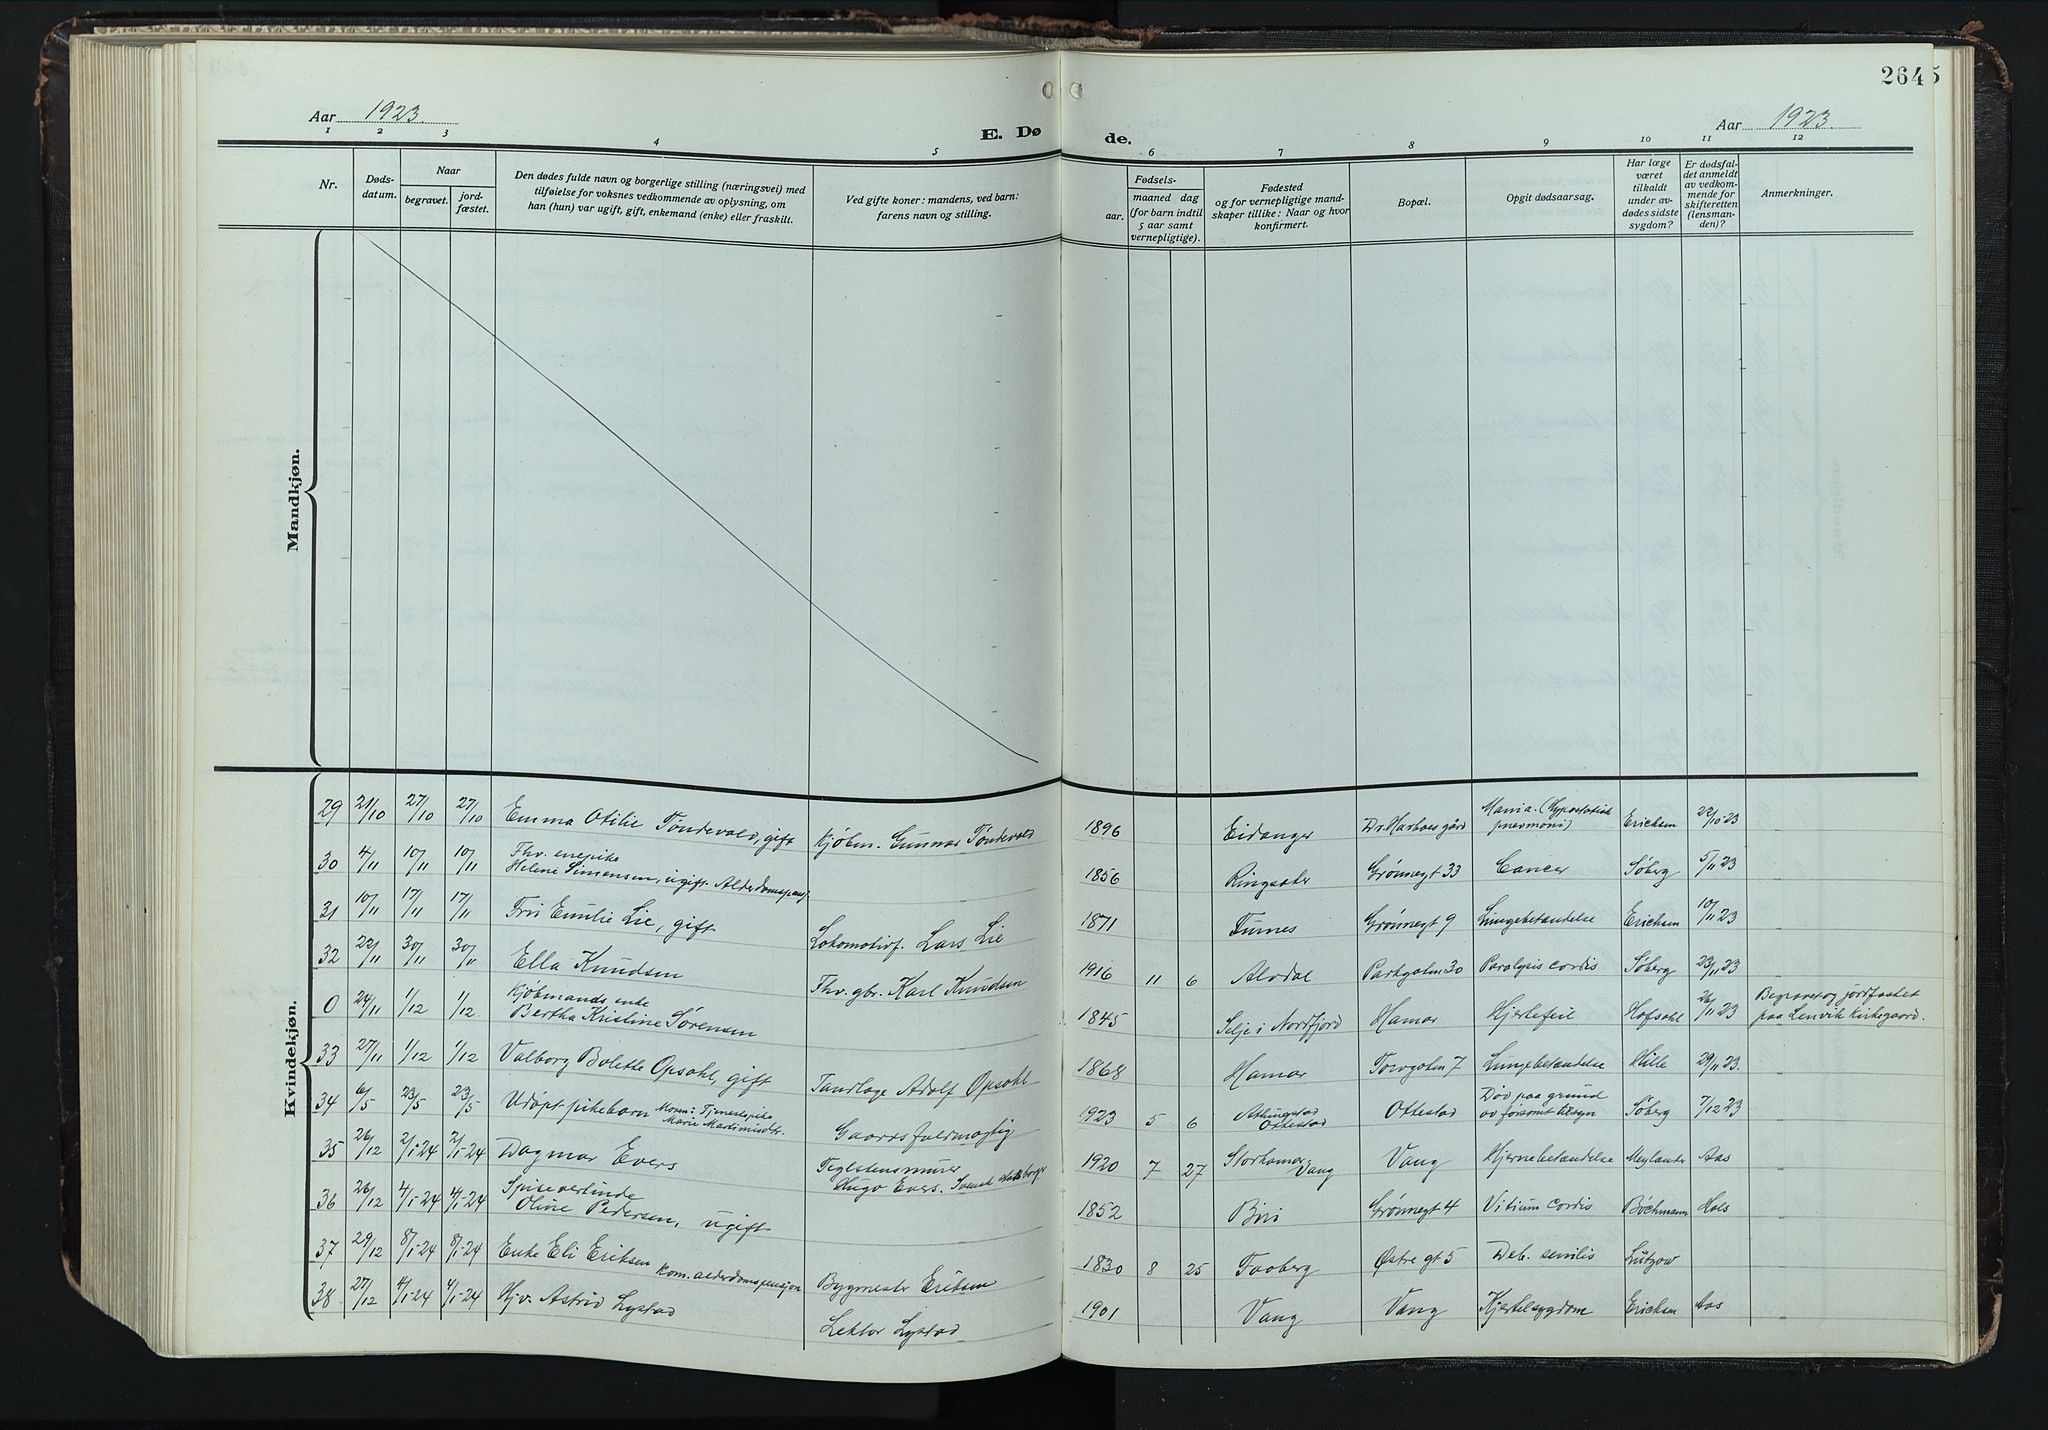 2645
Aar 1923.
E. Døde.
Aar 1923.
1 2 3 4 5 6 7 8 9 10 11 12
Nr.
Døds-
datum.
Naar
begravet.
jord-
fæstet.
Den dødes fulde navn og borgerlige stilling (næringsvei) med
tilføielse for voksnes vedkommende av oplysning, om
han (hun) var ugift, gift, enkemand (enke) eller fraskilt.
Ved gifte koner: mandens, ved barn:
farens navn og stilling.
Fødsels-
aar.
maaned dag
(for barn indtil
5 aar samt
vernepligtige).
Fødested
og for vernepligtige mand-
skaper tillike: Naar og hvor
konfirmert.
Bopæl.
Opgit dødsaarsag.
Har læge
været
tilkaldt
under av-
dødes sidste
sygdom?
Er dødsfal-
det anmeldt
av vedkom-
mende for
skifteretten
(lensman-
den)?
Anmerkninger.
Mandkjøn.
Kvindekjøn.
29 21/10 27/10 27/10 Emma Otilie Tøndevold, gift Kjøbm. Gunnar Tøndevold 1896 Eidanger Dr. Harboes gård Mania. (Hypostatisk
pnevmoni) Ericksen 22/10 23
30 4/11 10/11 10/11 Fhv. enepike
Helene Simensen, ugift. Alderdomspensj. 1856 Ringsaker Grønnegt 33 Cancer Søberg 5/11 23
31 10/11 17/11 17/11 Fru Emilie Lie, gift Lokomotivf. Lars Lie 1871 Furnes Grønnegt 9 Lungebetændelse Ericksen 10/11 23
32 22/11 30/11 30/11 Ella Knudsen Fhv. gbr. Karl Knudsen 1916 11 6 Alvdal Parkgaten 30 Paralysis cordis Søberg 23/11 23
0 24/11 1/12 1/12 Kjøbmands enke
Bertha Kristine Sørensen 1845 Selje i Nordfjord Hamar Hjertefeil Hofsahl 26/11 23 Begravet og jordfæstet
paa Lenvik Kirkegaard.
33 27/11 1/12 1/12 Valborg Bolette Opsahl, gift Tandlæge Adolf Opsahl 1868 Hamar Torvgaten 7 Lungebetændelse Hille 29/11 23.
34 6/5 23/5 23/5 Udøpt pikebarn Moren: Tjenestepike
Marie Martinusdtr. Gaardsfuldmægtig 1923 5 6 Ottestad Ottestad Død paa grund
av forsømt tilsyn Søberg 7/12 23
35 26/12 2/1-24 2/1-24 Dagmar Evers Teglstensmurer
Hugo Evers. Svensk statsborger 1920 7 27 Storhamar
Vang Vang Hjernebetændelse Meylander Aas
36 26/12 4/1-24 4/1-24 Spiseverтinde
Oline Pedersen, ugift 1852 Biri Grønnegt 4 Vitium cordis Bochmann Hols
37 29/12 8/1-24 8/1-24 Enke Eli Eriksen Kom. alderdomspensjon Bygmester Eriksen 1830 8 25 Faaberg Østre gt 5 Deb. senilis Lützow
38 27/12 4/1-24 4/1-24 Hjv. Astrid Lystad Lektor Lystad 1901 Vang Vang Kjertelsygdom Ericksen Aas